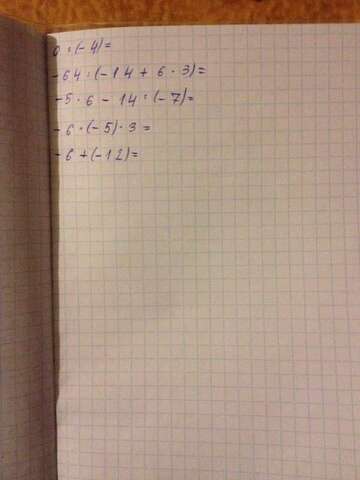 0 : (- 4) =
-64 : (-14 + 6 · 3) =
-5 · 6 - 14 : (-7) =
-6 · (-5) · 3 =
-6 + (-12) =